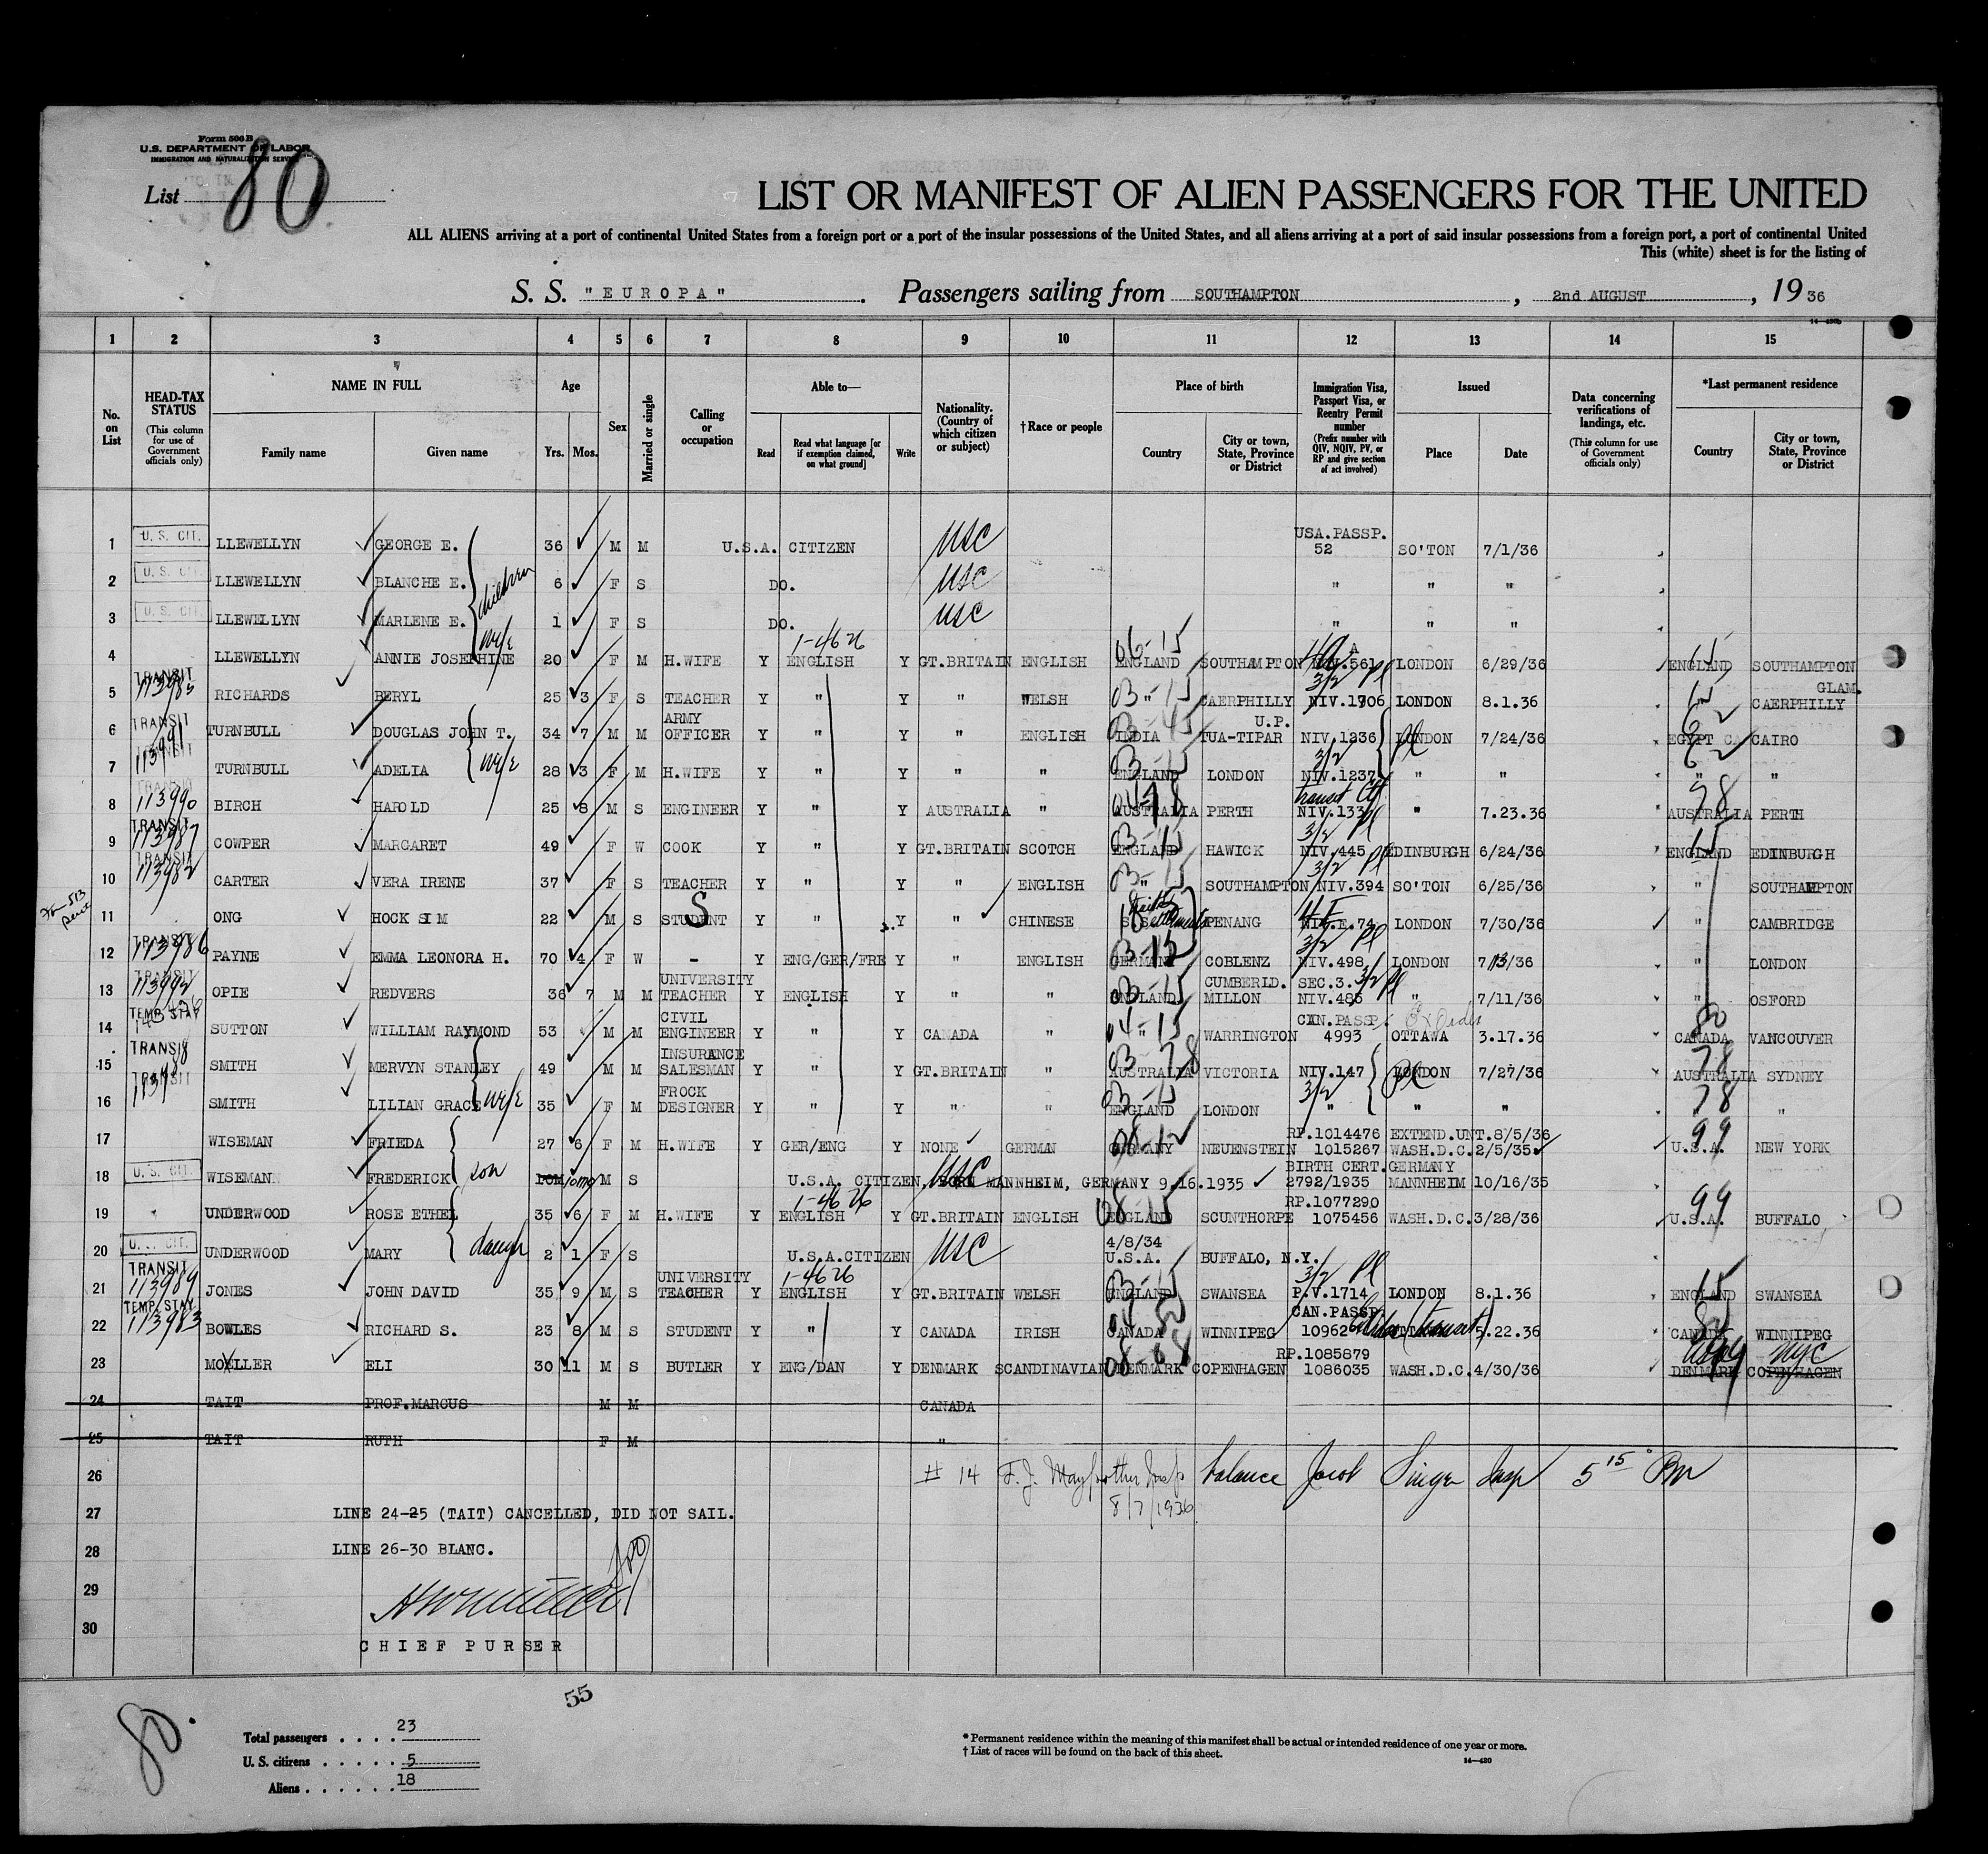 Form 500 B
U.S. DEPARTMENT OF LABOR
IMMIGRATION AND NATURALIZATION SERVICE
List 80
LIST OR MANIFEST OF ALIEN PASSENGERS FOR THE UNITED
ALL ALIENS arriving at a port of continental United States from a foreign port or a port of the insular possessions of the United States, and all aliens arriving at a port of said insular possessions from a foreign port, a port of continental United
This (white) sheet is for the listing of
S. S. "EUROPA" . Passengers sailing from SOUTHAMPTON , 2nd AUGUST , 19 36
1 2 3 4 5 6 7 8 9 10 11 12 13 14 15
No. on List
HEAD-TAX STATUS (This column for use of Government officials only)
NAME IN FULL Family name Given name
Age Yrs. Mos.
Sex
Married or single
Calling or occupation
Able to— Read Read what language [or if exemption claimed, on what ground] Write
Nationality. (Country of which citizen or subject)
†Race or people
Place of birth Country City or town, State, Province or District
Immigration Visa, Passport Visa, or Reentry Permit number (Prefix number with QIV, NQIV, PV, or RP and give section of act involved)
Issued Place Date
Data concerning verifications of landings, etc. (This column for use of Government officials only)
*Last permanent residence Country City or town, State, Province or District
1 U. S. CIT. LLEWELLYN GEORGE E. 36 M M U.S.A. CITIZEN USC USA.PASSP. 52 SO'TON 7/1/36
2 U. S. CIT. LLEWELLYN BLANCHE E. children 6 F S DO. USC " " "
3 U. S. CIT. LLEWELLYN MARLENE E. 1 F S DO. USC " " "
4 LLEWELLYN ANNIE JOSEPHINE wife 20 F M H.WIFE Y ENGLISH 1-4626 Y GT.BRITAIN ENGLISH 06-15 ENGLAND SOUTHAMPTON 561 LONDON 6/29/36 15 ENGLAND SOUTHAMPTON
5 TRANSIT RICHARDS BERYL 25 3 F S TEACHER Y " Y " WELSH 03-15 " CAERPHILLY 3/2 NIV.1306 LONDON 8.1.36 GLAM. CAERPHILLY
6 TRANSIT 113991 TURNBULL DOUGLAS JOHN T. 34 7 M M ARMY OFFICER Y " Y " ENGLISH INDIA U.P. TUA-TIPAR NIV.1236 LONDON 7/24/36 EGYPT CAIRO
7 TRANSIT TURNBULL ADELIA wife 28 3 F M H.WIFE Y " Y " " ENGLAND LONDON 3/2 NIV.1237 " " " "
8 TRANSIT 113990 BIRCH HAROLD 25 8 M S ENGINEER Y " Y AUSTRALIA " AUSTRALIA PERTH transit NIV.133 " 7.23.36 78 AUSTRALIA PERTH
9 TRANSIT 113987 COWPER MARGARET 49 F W COOK Y " Y GT.BRITAIN SCOTCH 03-15 ENGLAND HAWICK 3/2 NIV.445 EDINBURGH 6/24/36 15 ENGLAND EDINBURGH
10 TRANSIT 113982 CARTER VERA IRENE 37 F S TEACHER Y " Y " ENGLISH 03-15 " SOUTHAMPTON 3/2 NIV.394 SO'TON 6/25/36 " SOUTHAMPTON
11 ONG HOCK SIM 22 M S STUDENT S Y " Y " CHINESE Straits Settlements PENANG 4E 74 LONDON 7/30/36 " CAMBRIDGE
12 TRANSIT 113986 PAYNE EMMA LEONORA H. 70 4 F W - Y ENG/GER/FRE Y " ENGLISH 03-12 GERMANY COBLENZ 3/2 NIV.498 LONDON 7/13/36 " LONDON
13 TRANSIT 113992 OPIE REDVERS 36 7 M M UNIVERSITY TEACHER Y ENGLISH Y " " 03-15 ENGLAND CUMBERLD. MILLON SEC.3.3/2 NIV.485 " 7/11/36 " OSFORD
14 TEMP. STAY SUTTON WILLIAM RAYMOND 53 M M CIVIL ENGINEER Y " Y CANADA " 04-15 " WARRINGTON CAN.PASSP. 4993 OTTAWA 3.17.36 80 CANADA VANCOUVER
15 TRANSIT SMITH MERVYN STANLEY 49 M M INSURANCE SALESMAN Y " Y GT.BRITAIN " 03-78 AUSTRALIA VICTORIA NIV.147 LONDON 7/27/36 78 AUSTRALIA SYDNEY
16 TRANSIT SMITH LILIAN GRACE wife 35 F M FROCK DESIGNER Y " Y " " 03-15 ENGLAND LONDON 3/2 " " " 78 "
17 WISEMAN FRIEDA 27 6 F M H.WIFE Y GER/ENG Y NONE GERMAN 08-12 GERMANY NEUENSTEIN RP.1014476 1015267 EXTEND.UNT.8/5/36 WASH.D.C.2/5/35 99 U.S.A. NEW YORK
18 U. S. CIT. WISEMAN FREDERICK son 10mo M S U.S.A. CITIZEN, USC BORN MANNHEIM, GERMANY 9.16.1935 BIRTH CERT.GERMANY 2792/1935 MANNHEIM 10/16/35
19 UNDERWOOD ROSE ETHEL 35 6 F M H.WIFE Y ENGLISH 1-4626 Y GT.BRITAIN ENGLISH 08-15 ENGLAND SCUNTHORPE RP.1077290 1075456 WASH.D.C.3/28/36 99 U.S.A. BUFFALO
20 U. S. CIT. UNDERWOOD MARY daugh 2 1 F S U.S.A.CITIZEN USC 4/8/34 U.S.A. BUFFALO, N.Y.
21 TRANSIT 113989 JONES JOHN DAVID 35 9 M S UNIVERSITY TEACHER Y ENGLISH 1-4626 Y GT.BRITAIN WELSH 03-15 ENGLAND SWANSEA 3/2 P.V.1714 LONDON 8.1.36 15 ENGLAND SWANSEA
22 TEMP. STAY 113983 BOWLES RICHARD S. 23 8 M S STUDENT Y " Y CANADA IRISH CANADA WINNIPEG CAN.PASSP. 10962 5.22.36 CANADA WINNIPEG
23 MOELLER ELI 30 11 M S BUTLER Y ENG/DAN Y DENMARK SCANDINAVIAN 08-08 DENMARK COPENHAGEN RP.1085879 1086035 WASH.D.C.4/30/36 DENMARK COPENHAGEN NYC
24 TAIT PROF.MARCUS M M CANADA
25 TAIT RUTH F M "
26 # 14 balance Jacob Singer Insp 5 15 Pm
8/7/1936
27 LINE 24-25 (TAIT) CANCELLED, DID NOT SAIL.
28 LINE 26-30 BLANC.
29
30
CHIEF PURSER
55
80.
Total passengers . . . . 23
U. S. citizens . . . . . 5
Aliens . . . . . . 18
* Permanent residence within the meaning of this manifest shall be actual or intended residence of one year or more.
† List of races will be found on the back of this sheet.
14—430